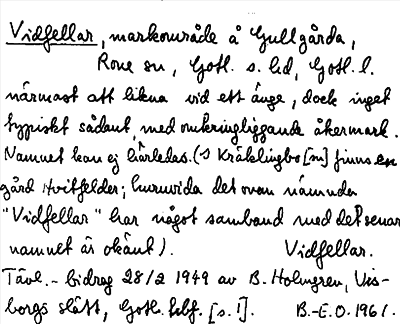 Vidfellar, markområde å Gullgårda,
Rone sn, Gotl. s. hd, Gotl. l.
närmast att likna vid ett änge, dock inget
typiskt sådant, med omkringliggande åkermark.
Namnet kan ej härledas. (I Kräklingbo [sn] finns en
gård Hvitfelder; huruvida det ovan nämnda
"Vidfellar" har något samband med det senare
namnet är okänt). Vidfellar.
Tävl.-bidrag 28/2 1949 av B. Holmgren, Vis-
borgs slätt, Gotl. [s. 1]. B.-E.O. 1961.